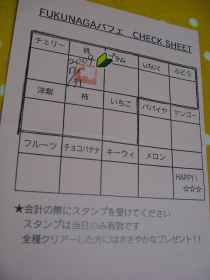 FUKUNAGAパフェ CHECK SHEET
チェリー 桃 プラム いちじく ぶどう
洋梨 柿 いちご パパイヤ マンゴー
フルーツ チョコバナナ キーウィ メロン
HAPPY!
☆☆☆
★会計の際にスタンプを受けてください
スタンプは当日のみ有効です
全種クリアーした方にはささやかなプレゼント!!